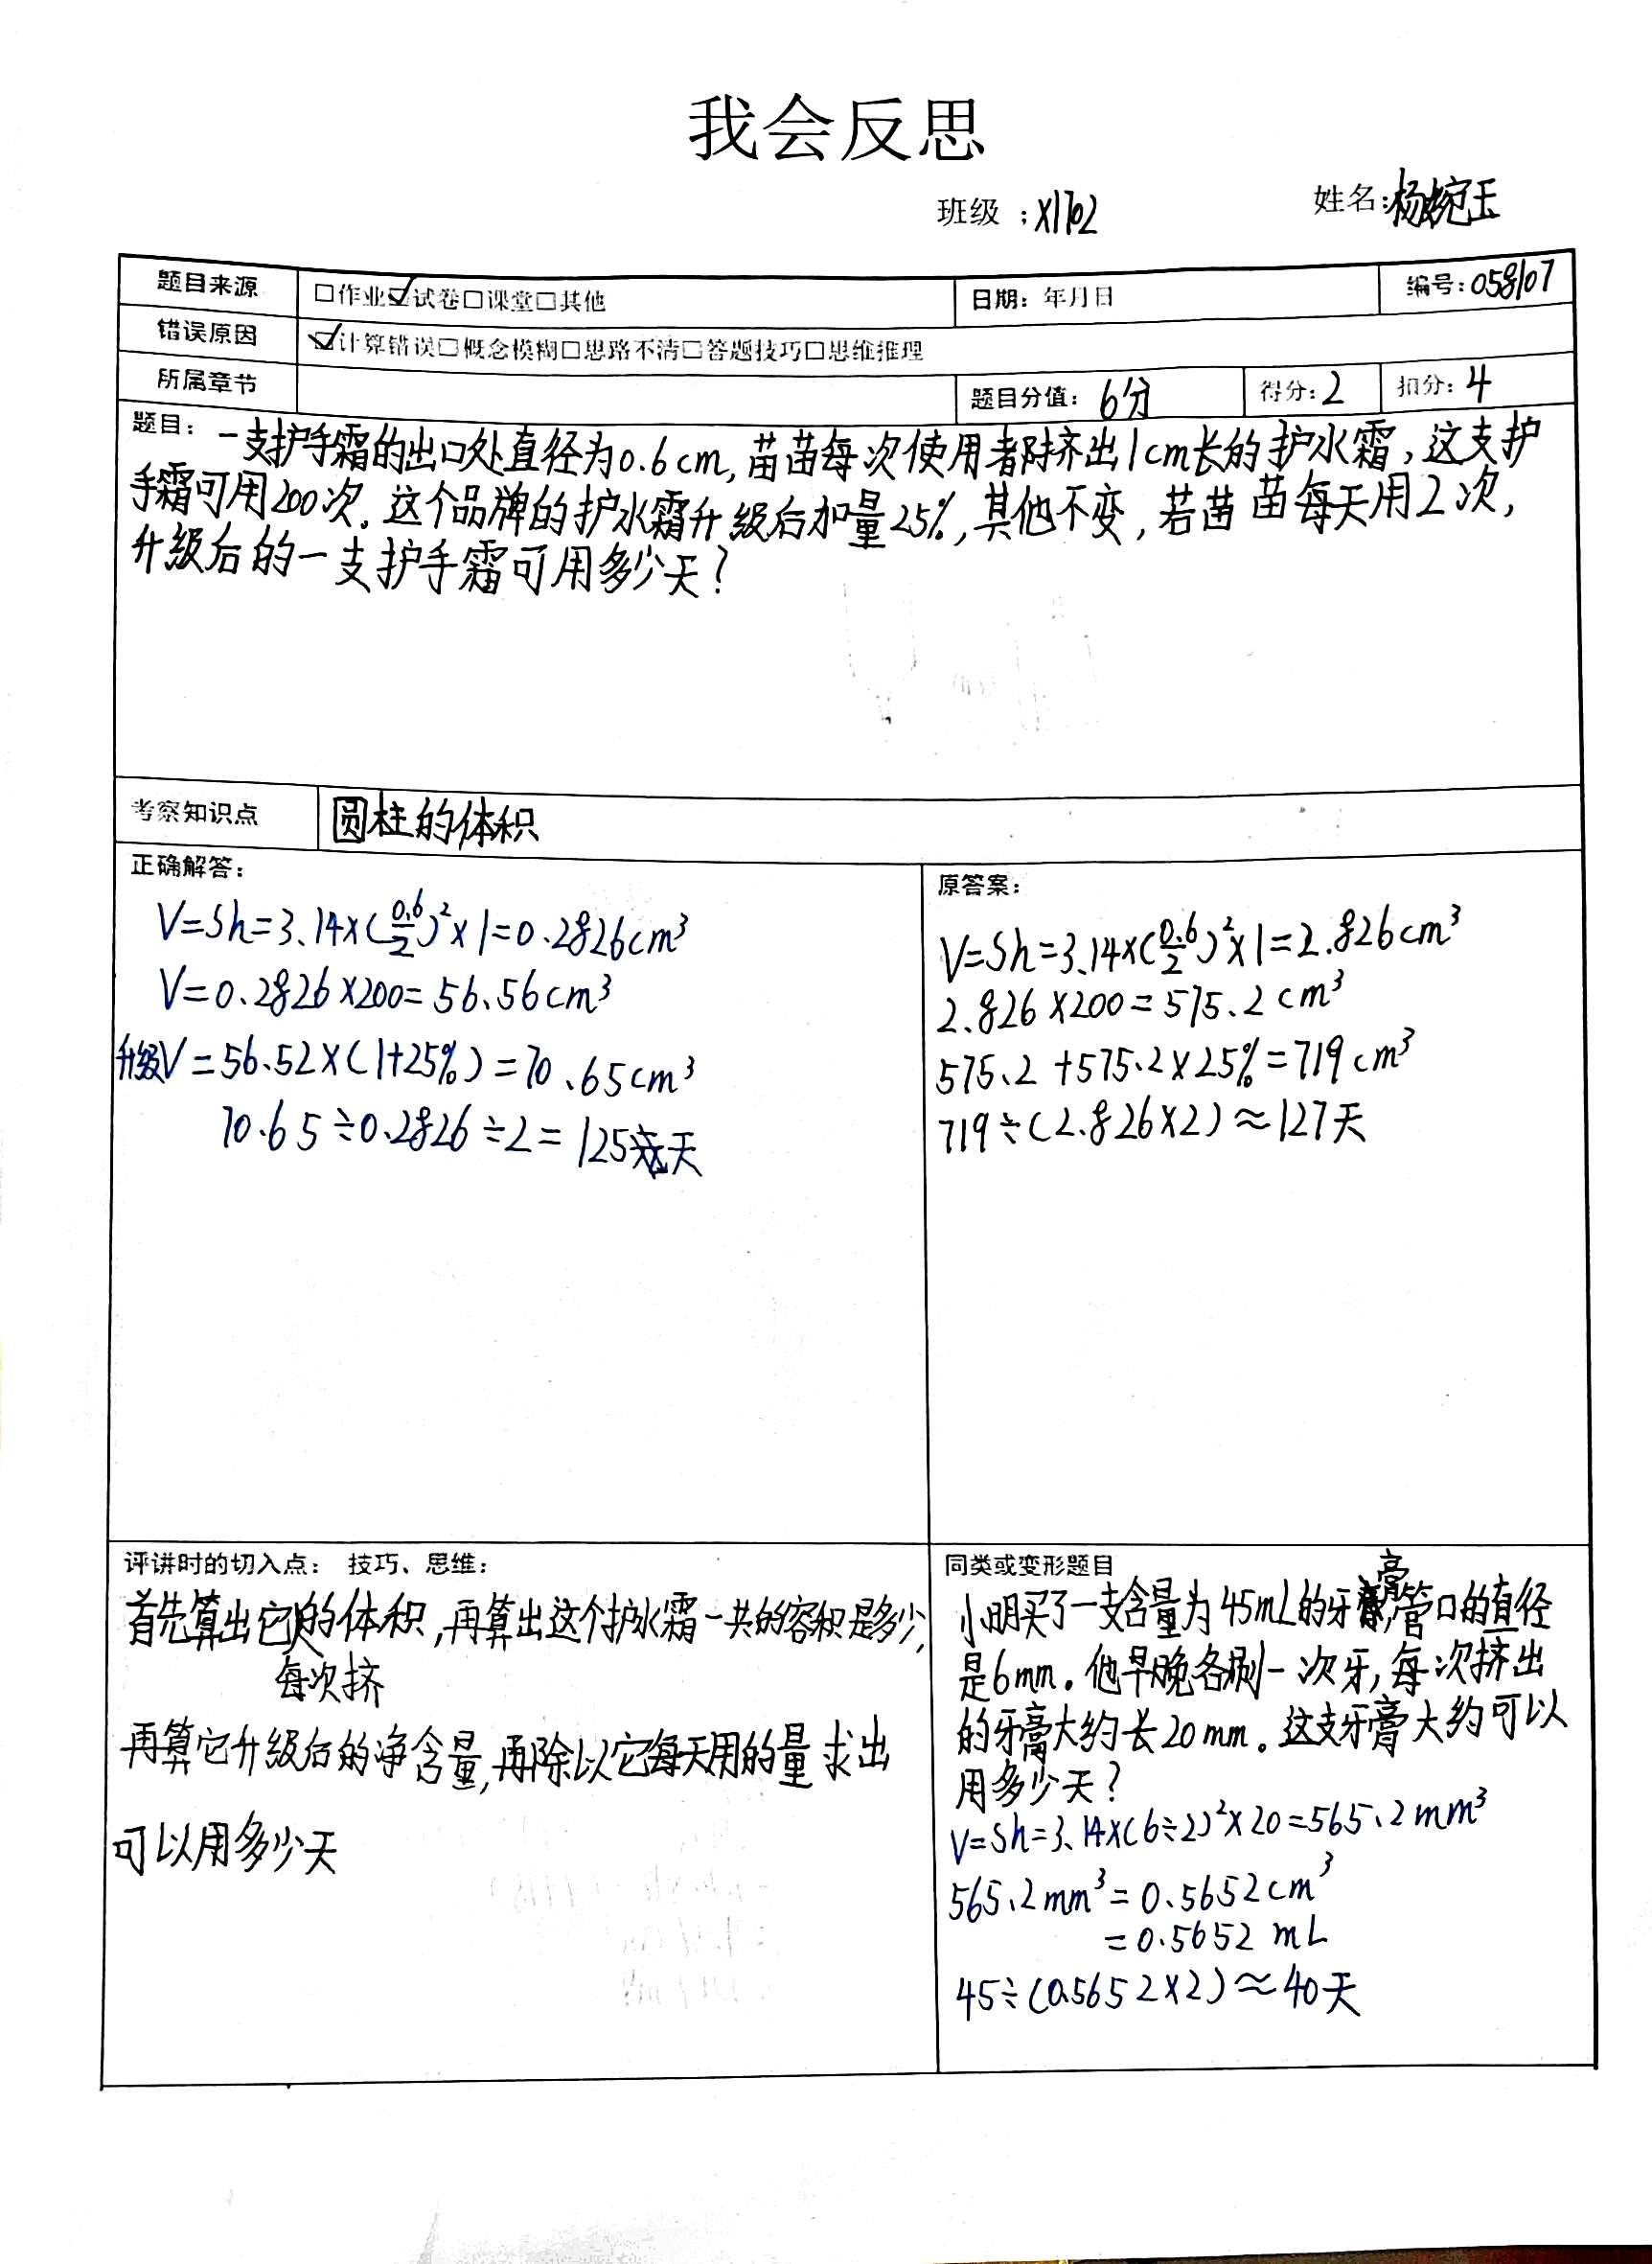 我会反思
班级：X1702 姓名：杨婉玉
题目来源 □作业☑试卷□课堂□其他 日期：年月日 编号：058107
错误原因 ☑计算错误□概念模糊□思路不清□答题技巧□思维推理
所属章节 题目分值：6分 得分：2 扣分：4
题目：一支护手霜的出口处直径为0.6cm，苗苗每次使用都挤出1cm长的护水霜，这支护
手霜可用200次。这个品牌的护水霜升级后加量25%，其他不变，若苗苗每天用2次，
升级后的一支护手霜可用多少天？
考察知识点 圆柱的体积
正确解答：
V=Sh=3.14×(0.6/2)²×1=0.2826cm³
V=0.2826×200=56.56cm³
升级V=56.52×(1+25%)=70.65cm³
70.65÷0.2826÷2=125天
原答案：
V=Sh=3.14×(0.6/2)²×1=2.826cm³
2.826×200=575.2cm³
575.2+575.2×25%=719cm³
719÷(2.826×2)≈127天
评讲时的切入点： 技巧、思维：
首先算出它每次挤的体积，再算出这个护水霜一共的容积是多少，
再算它升级后的净含量，再除以它每天用的量求出
可以用多少天
同类或变形题目
小明买了一支含量为45mL的牙膏，管口的直径
是6mm。他早晚各刷一次牙，每次挤出
的牙膏大约长20mm。这支牙膏大约可以
用多少天？
V=Sh=3.14×(6÷2)²×20=565.2mm³
565.2mm³=0.5652cm³
=0.5652mL
45÷(0.5652×2)≈40天